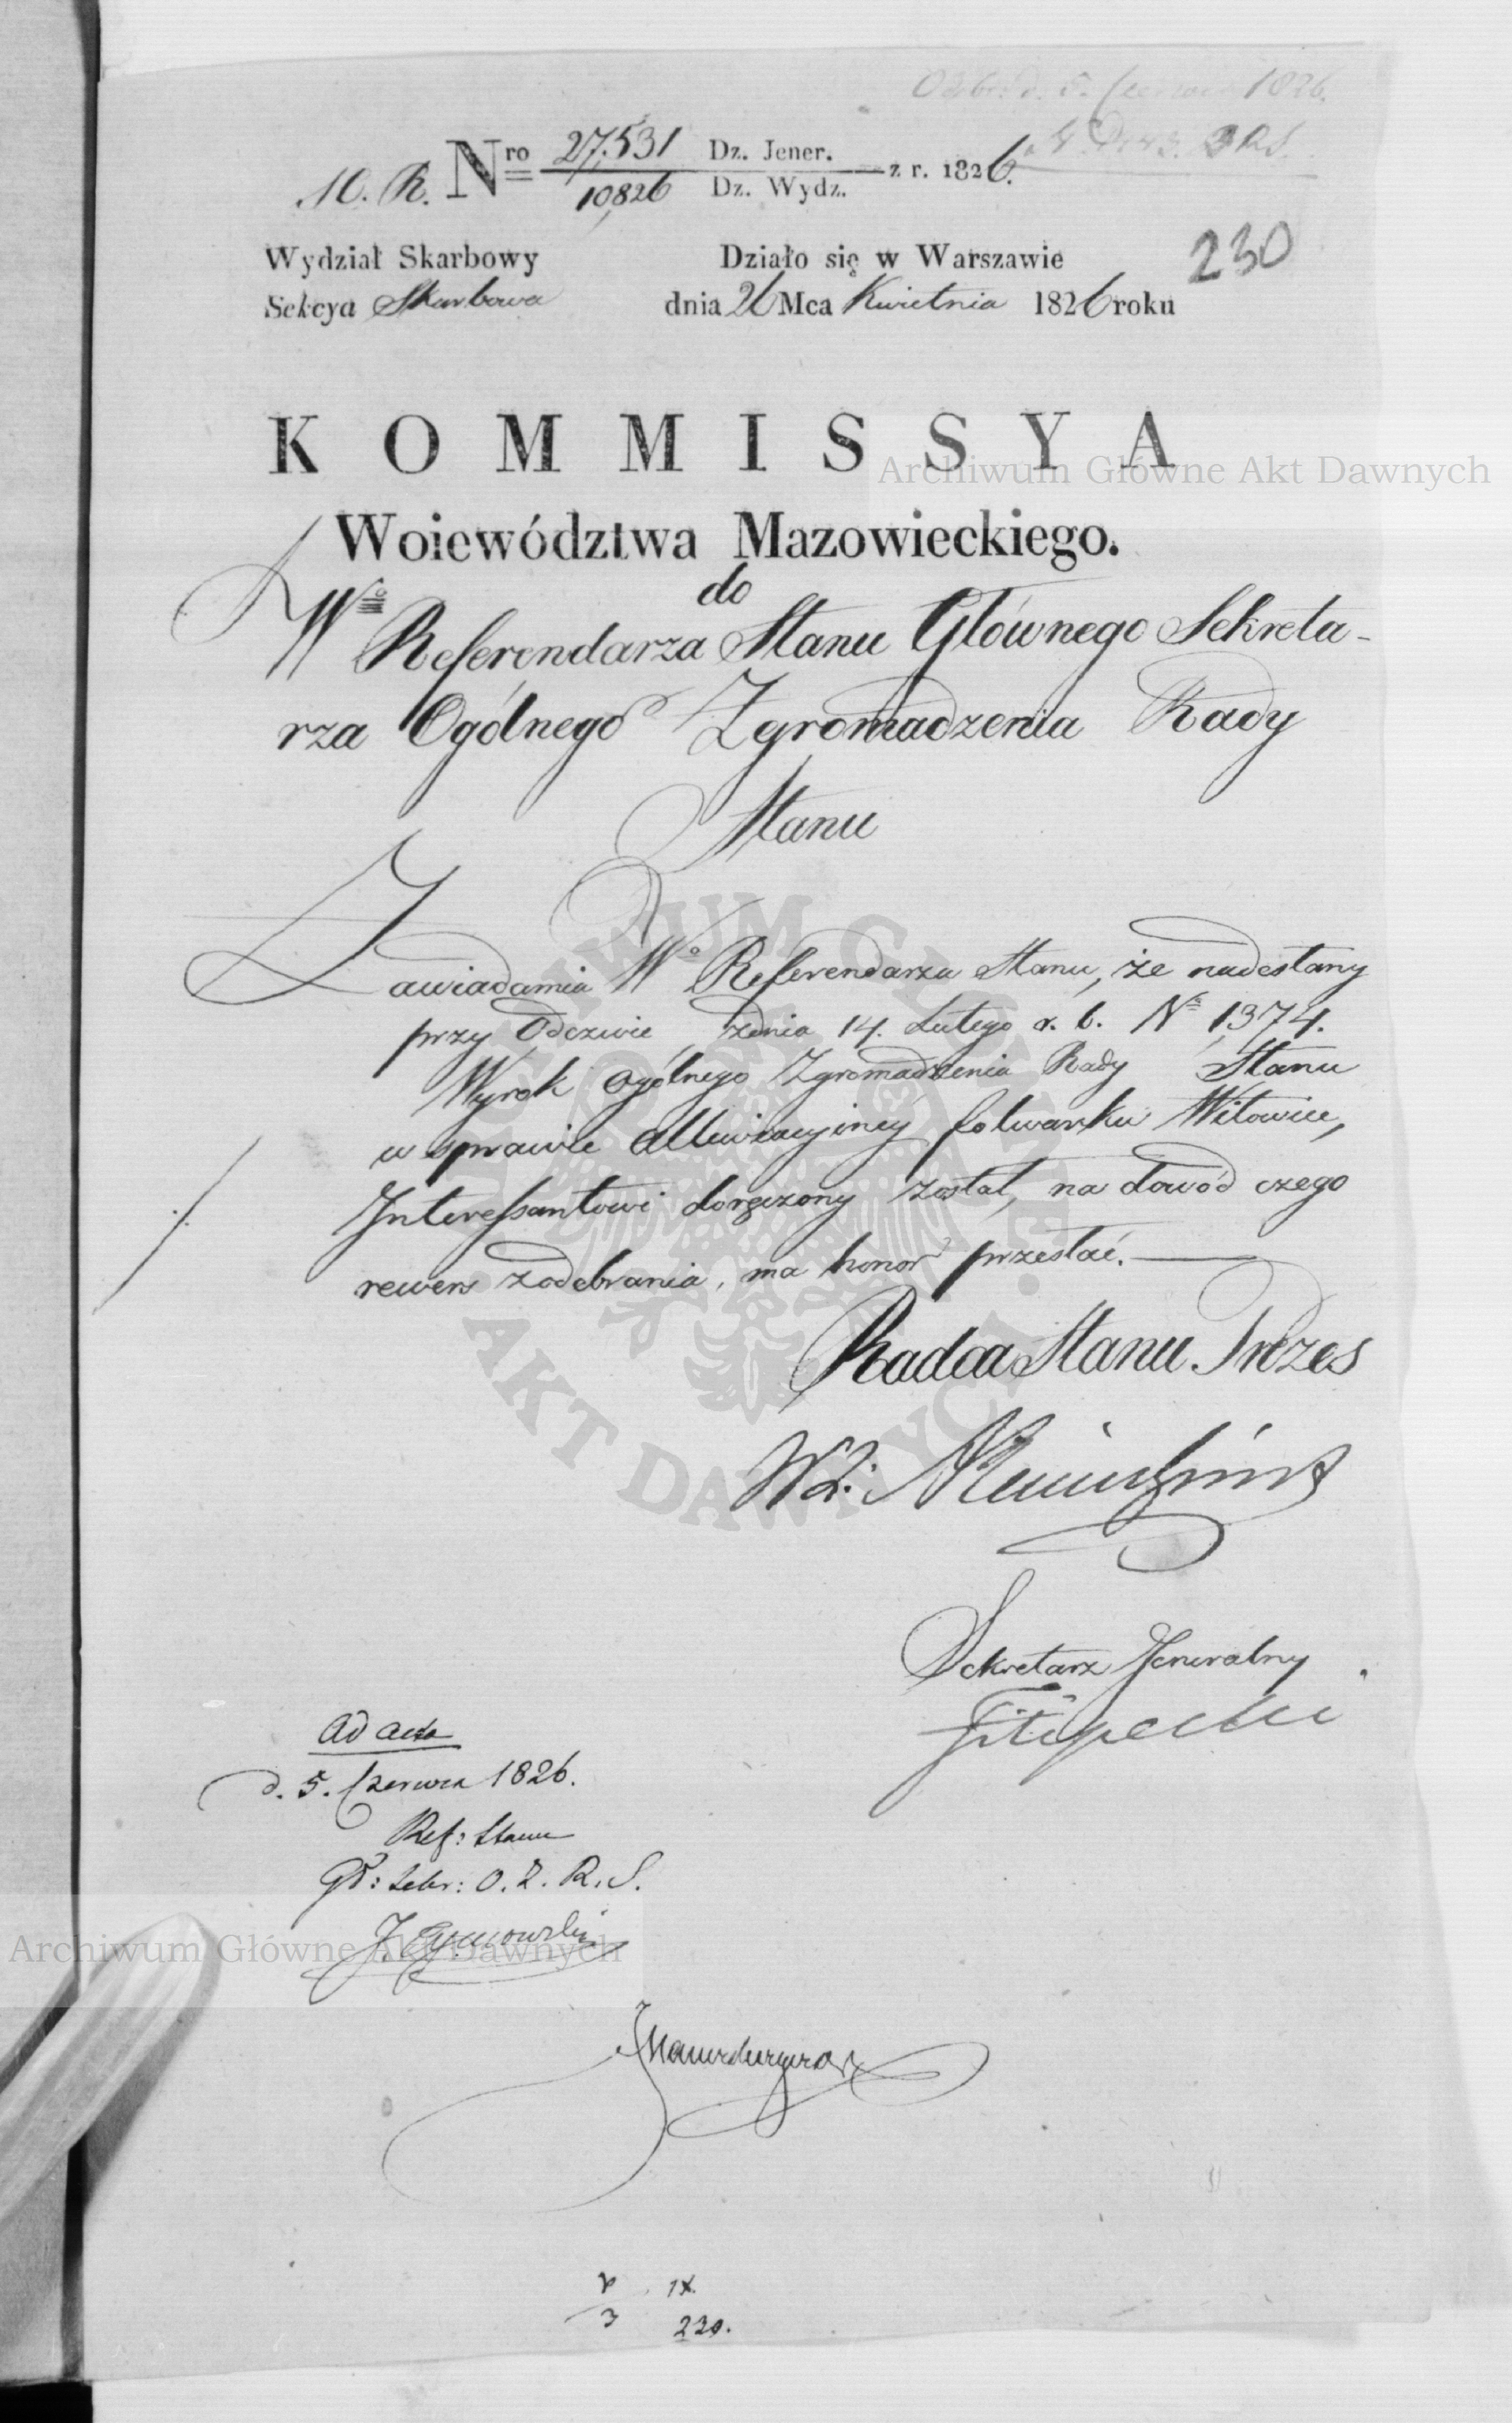 Odebr. d. 5. Czerwca 1826.
M. R. Nro 27,531 Dz. Jener. z r. 1826.
10,826 Dz. Wydz.
230
Wydział Skarbowy Działo się w Warszawie
Sekcya Skarbowa dnia 26 Mca Kwietnia 1826 roku
KOMMISSYA
Archiwum Główne Akt Dawnych
Woiewództwa Mazowieckiego.
do
Wo Referendarza Stanu Głównego Sekreta-
rza Ogólnego Zgromadzenia Rady
Stanu
Zawiadamia Wo Referendarza Stanu, że nadesłany
przy Odezwie z dnia 14. Lutego r. b. No 1,374.
Wyrok Ogólnego Zgromadzenia Rady Stanu
w sprawie alluwiacyjnéy folwarku Witowice,
Interessantowi doręczony został, na dowód czego
rewers z odebrania, ma honor przesłać.
Radca Stanu Prezes
WZ.
Sekretarz Jeneralny
Filipecki
Ad acta
d. 5. Czerwca 1826.
Ref: Stanu
Gł: Sekr: O. Z. R. S.
J. Tymowski
Archiwum Główne Akt Dawnych
IX.
3
230.
ARCHIWUM GŁÓWNE AKT DAWNYCH